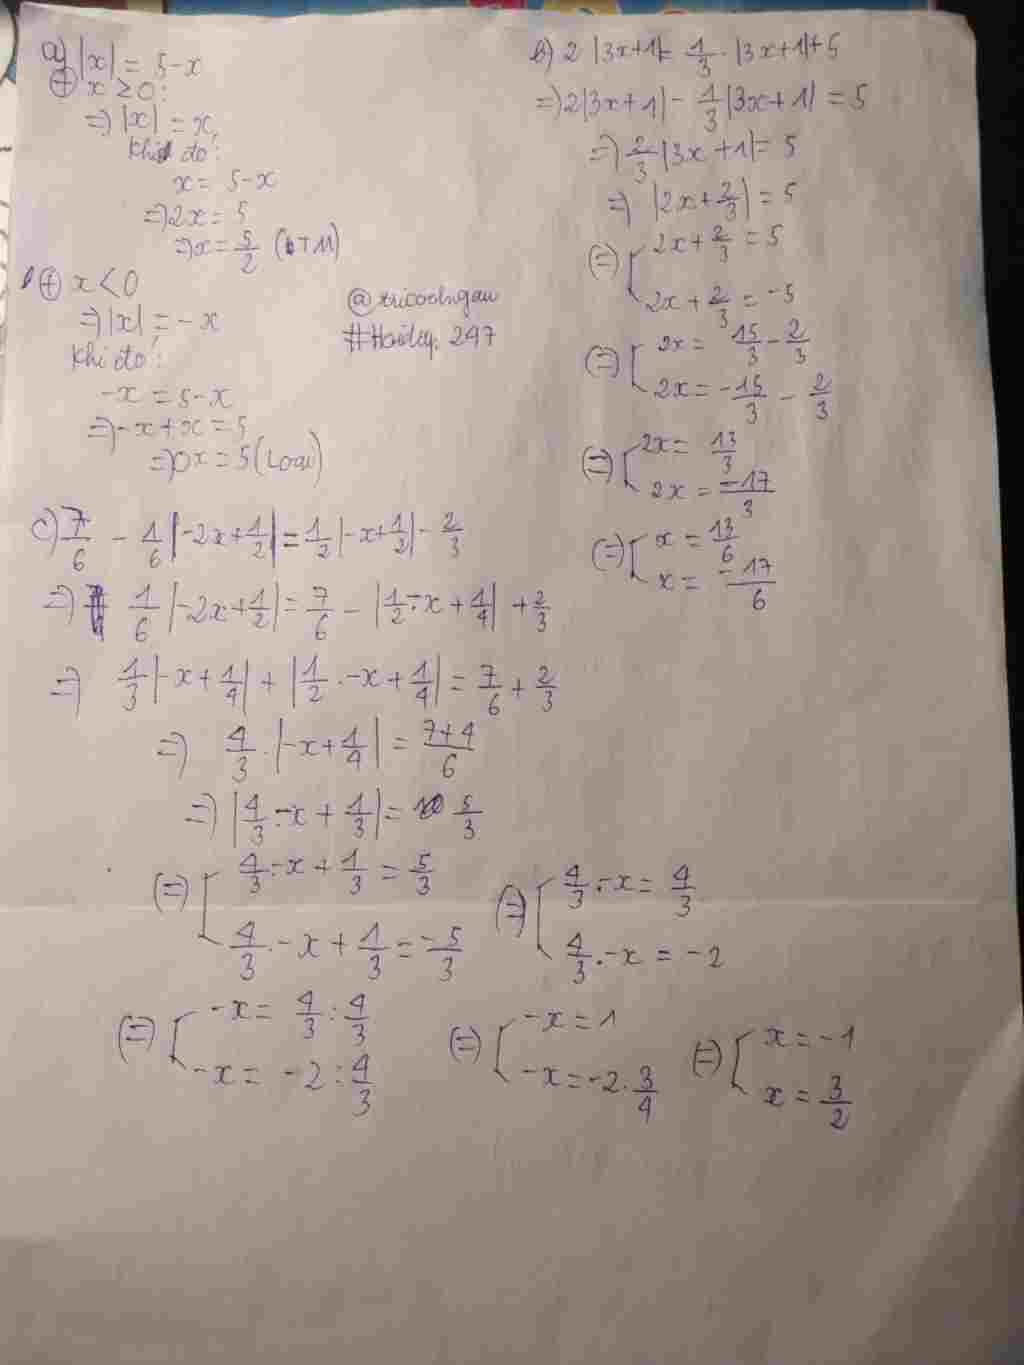 a) |x| = 5-x
⊕ x ≥ 0:
=> |x| = x
Khi đó:
x = 5-x
=> 2x = 5
=> x = 5/2 (TM)
⊕ x < 0
=> |x| = -x
Khi đó:
-x = 5-x
=> -x+x = 5
=> 0x = 5 (Loại)
b) 2|3x+1| = 1/3 . |3x+1|+5
=> 2|3x+1| - 1/3|3x+1| = 5
=> 2/3|3x+1| = 5
=> |2x+2/3| = 5
(=) [ 2x+2/3 = 5
2x+2/3 = -5
(=) [ 2x = 15/3 - 2/3
2x = -15/3 - 2/3
(=) [ 2x = 13/3
2x = -17/3
(=) [ x = 13/6
x = -17/6
c) 7/6 - 1/6|-2x+1/2| = 1/2|-x+1/2| - 2/3
=> 1/6|-2x+1/2| = 7/6 - |1/2.-x+1/4| + 2/3
=> 1/3|-x+1/4| + |1/2.-x+1/4| = 7/6 + 2/3
=> 4/3.|-x+1/4| = 7+4/6
=> |4/3.-x+1/3| = 5/3
(=) [ 4/3.-x+1/3 = 5/3
4/3.-x+1/3 = -5/3
(=) [ 4/3.-x = 4/3
4/3.-x = -2
(=) [ -x = 4/3:4/3
-x = -2:4/3
(=) [ -x = 1
-x = -2.3/4
(=) [ x = -1
x = 3/2